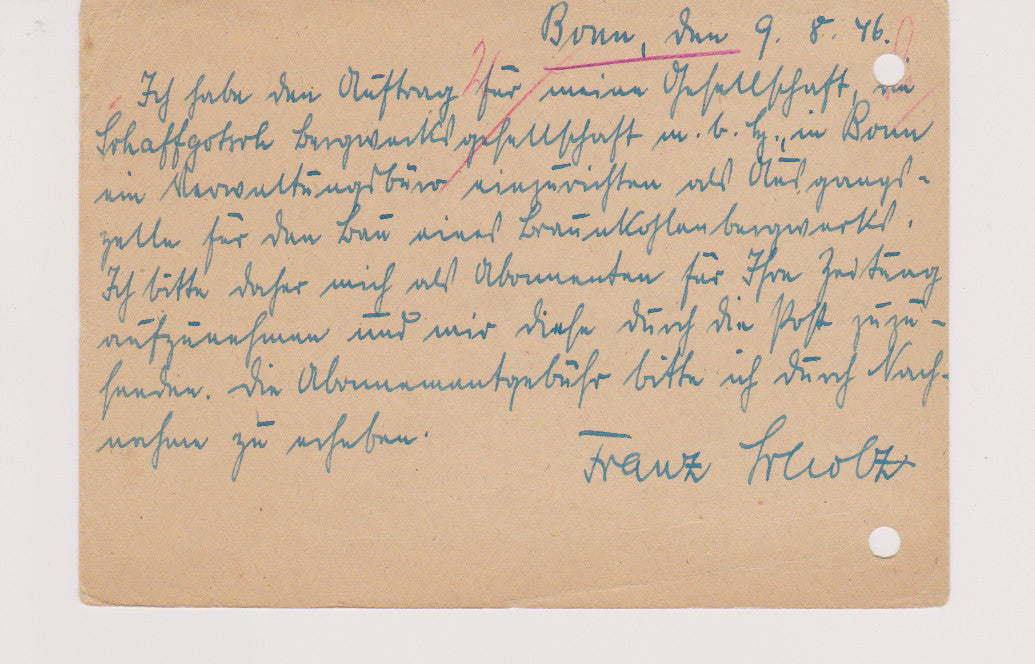 Bonn, den 9. 8. 46.
Ich habe den Auftrag für meine Gesellschaft, die
Schaffgotsch Bergwerksgesellschaft m. b. H., in Bonn
ein Verwaltungsbüro einzurichten als Ausgangs-
zelle für den Bau eines Braunkohlenbergwerks.
Ich bitte daher mich als Abonnenten für Ihre Zeitung
aufzunehmen und mir diese durch die Post zuzu-
senden. Die Abonnementgebühr bitte ich durch Nach-
nahme zu erheben.
Franz Scholz